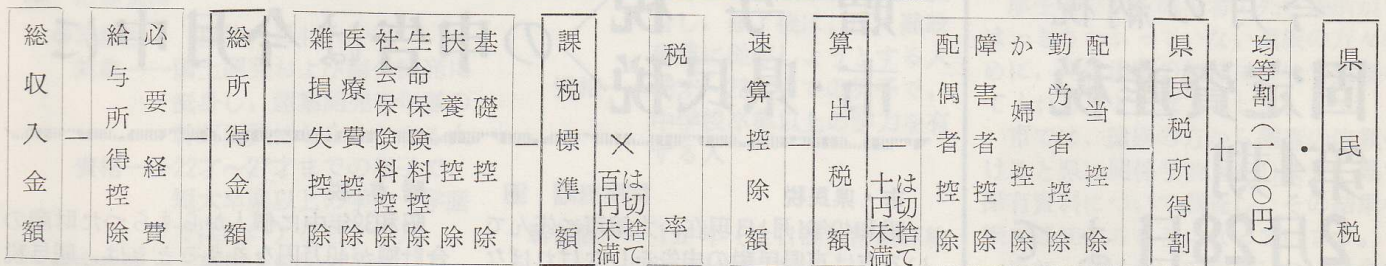 県民税
・
均等割(一〇〇円)
+
県民税所得割
—
配当控除
勤労者控除
か婦控除
障害者控除
配偶者控除
—
十円未満
は切捨て
算出税額
—
速算控除額
—
税率
×
百円未満
は切捨て
課税標準額
—
基礎控除
扶養控除
生命保険料控除
社会保険料控除
医療費控除
雑損失控除
—
総所得金額
—
必要経費
給与所得控除
—
総収入金額